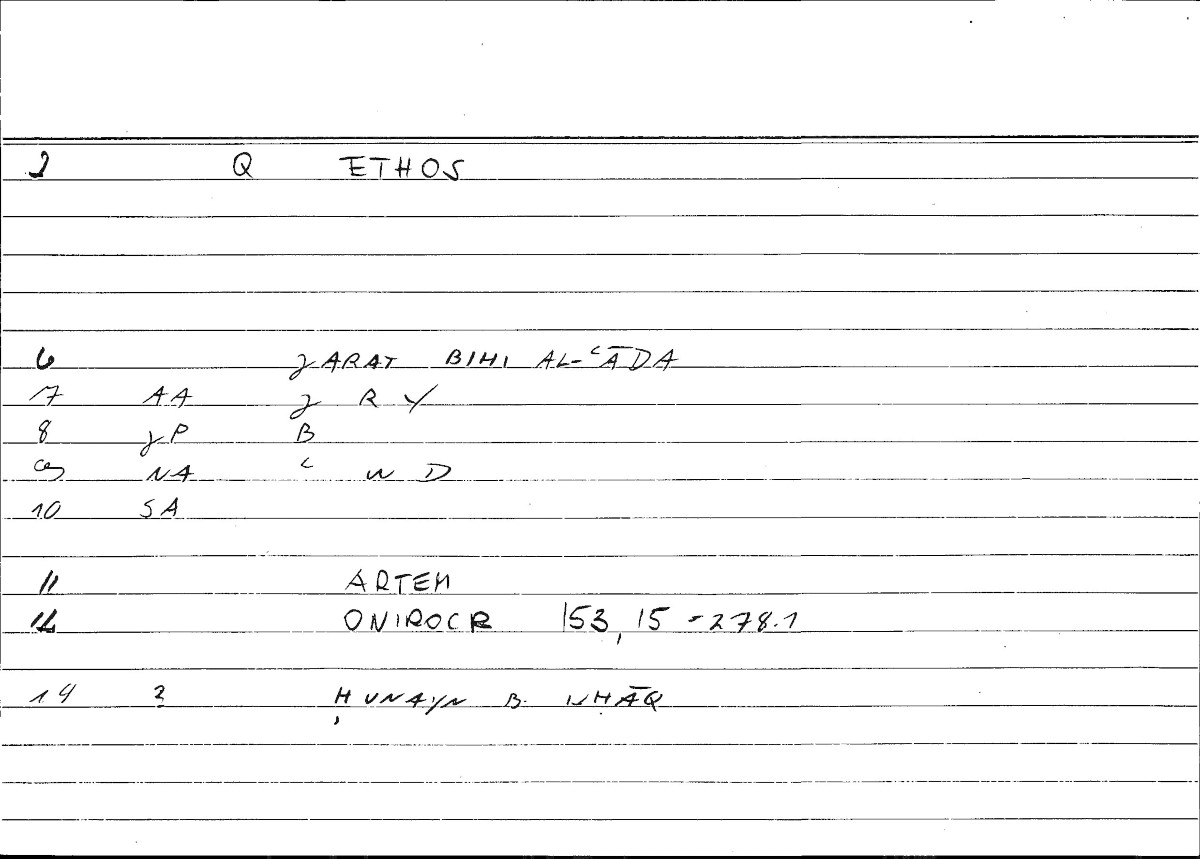 2 Q ETHOS
6 ǧARAT BIHI AL-ʿĀDA
7 AA ǧ R Y
8 ǧP B
9 NA ʿ W D
10 SA
11 ARTEM
12 ONIROCR 153,15 - 278.1
14 2 ḤUNAYN B. ISḤĀQ